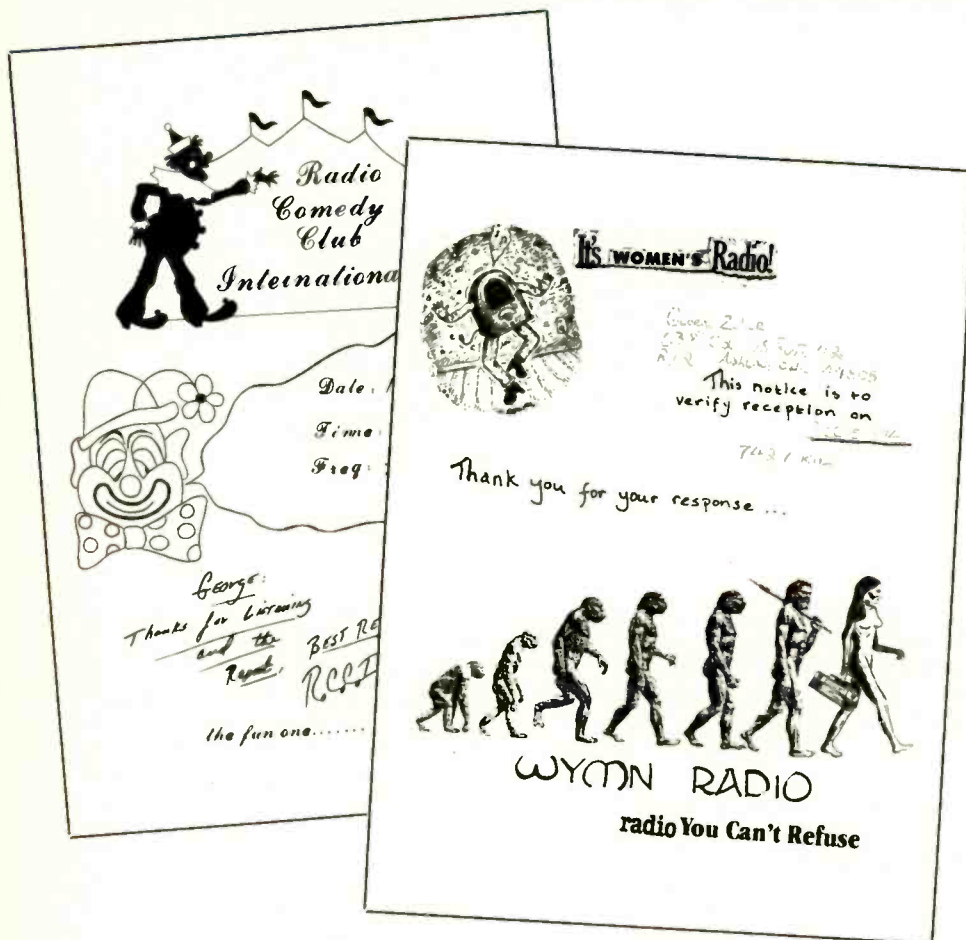 Radio
Comedy
Club
Internationa
Date:
Time:
Freq:
George:
Thanks for Listening
and the
Report,
BEST RE
R.C.C.I
the fun one.......
It's WOMEN'S Radio!
This notice is to
verify reception on
Thank you for your response ...
WYMN RADIO
radio You Can't Refuse